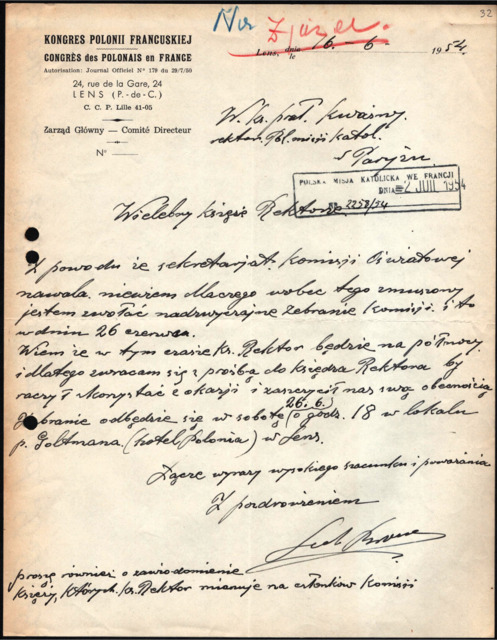 32
Zjazd.
KONGRES POLONII FRANCUSKIEJ
CONGRÈS des POLONAIS en FRANCE
Autorisation: Journal Officiel N° 179 du 29/7/50
24, rue de la Gare, 24
LENS (P.-de-C.)
C. C. P. Lille 41-05
Zarząd Główny — Comité Directeur
N°
Lens, dnia le 16 - 6 1954
W. Ks. prał. Kwaśny
rektor Pol. misji katol.
w Paryżu
POLSKA MISJA KATOLICKA WE FRANCJI
DNIA 2 JUIL 1954
NR. 2258/54
Wielebny księże Rektorze
Z powodu że sekretarjat Komisji Oświatowej
nawala, niewiem dlaczego wobec tego zmuszony
jestem zwołać nadzwyczajne zebranie Komisji i to
w dniu 26 czerwca.
Wiem że w tym czasie ks. Rektor będzie na północy
i dlatego zwracam się z prośbą do księdza Rektora by
raczył skorzystać z okazji i zaszczycił nas swą obecnością
Zebranie odbędzie się w sobotę (26.6) o godz. 18 w lokalu
p. Goltmana (hotel Polonia) w Lens.
Łączę wyrazy wysokiego szacunku i poważania
Z pozdrowieniem
proszę również o zawiadomienie
księży, których ks. Rektor mianuje na członków Komisji